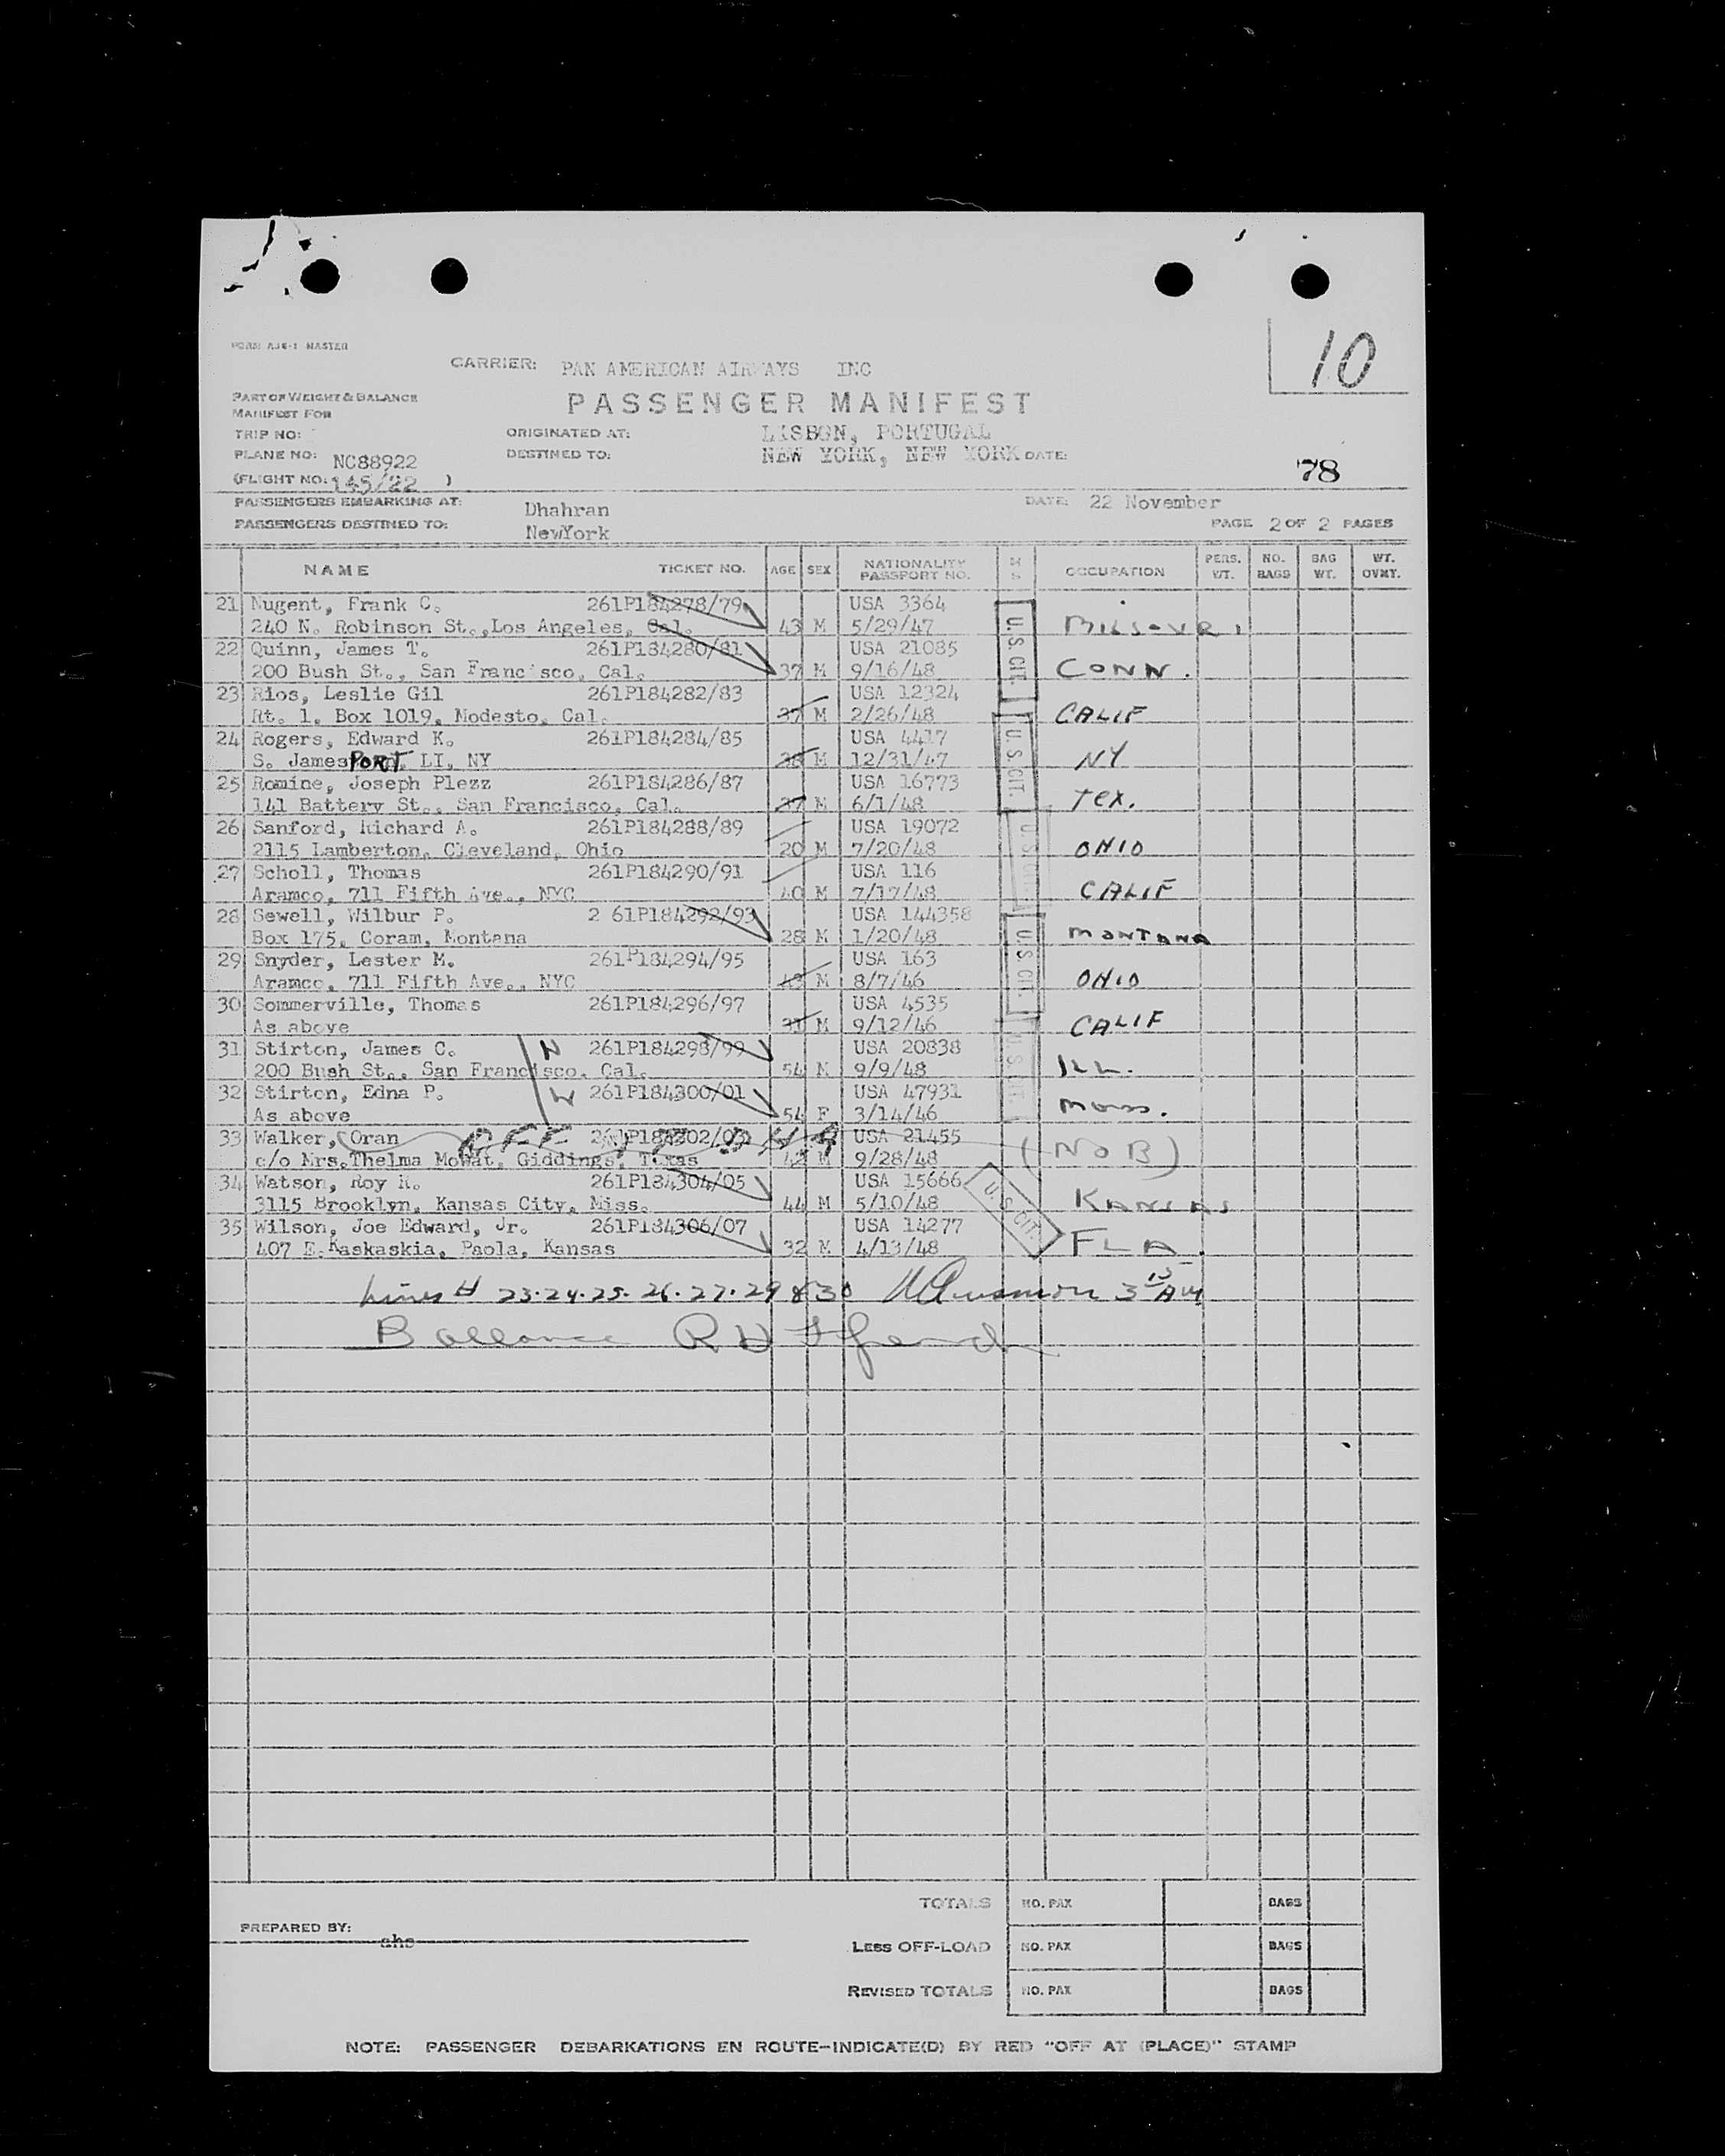 FORM AJ6-1 MASTER
10
CARRIER: PAN AMERICAN AIRWAYS INC
PART OF WEIGHT & BALANCE
MANIFEST FOR
PASSENGER MANIFEST
TRIP NO: ORIGINATED AT: LISBON, PORTUGAL
PLANE NO: NC88922 DESTINED TO: NEW YORK, NEW YORK DATE:
(FLIGHT NO: 145/22 ) 78
PASSENGERS EMBARKING AT: Dhahran DATE: 22 November
PASSENGERS DESTINED TO: NewYork PAGE 2 OF 2 PAGES
NAME TICKET NO. AGE SEX NATIONALITY PASSPORT NO. M S OCCUPATION PERS. WT. NO. BAGS BAG WT. WT. OVWT.
21 Nugent, Frank C. 261P184278/79 USA 3364
240 N. Robinson St.,Los Angeles, Cal. 43 M 5/29/47 MISSOURI
22 Quinn, James T. 261P184280/81 USA 21085
200 Bush St., San Francisco, Cal. 37 M 9/16/48 CONN.
23 Rios, Leslie Gil 261P184282/83 USA 12324
Rt. 1, Box 1019, Modesto, Cal. 37 M 2/26/48 CALIF
24 Rogers, Edward K. 261P184284/85 USA 4417
S. JamesPORT, LI, NY 38 M 12/31/47 NY
25 Romine, Joseph Plezz 261P184286/87 USA 16773
141 Battery St., San Francisco, Cal. 37 M 6/1/48 Tex.
26 Sanford, Richard A. 261P184288/89 USA 19072
2115 Lamberton, Cleveland, Ohio 20 M 7/20/48 OHIO
27 Scholl, Thomas 261P184290/91 USA 116
Aramco, 711 Fifth Ave., NYC 40 M 7/17/48 CALIF
28 Sewell, Wilbur P. 2 61P184292/93 USA 144358
Box 175, Coram, Montana 28 M 1/20/48 MONTANA
29 Snyder, Lester M. 261P184294/95 USA 163
Aramco, 711 Fifth Ave., NYC M 8/7/46 OHIO
30 Sommerville, Thomas 261P184296/97 USA 4535
As above 31 M 9/12/46 CALIF
31 Stirton, James C. H 261P184298/99 USA 20838
200 Bush St., San Francisco, Cal. 54 M 9/9/48 ILL.
32 Stirton, Edna P. W 261P184300/01 USA 47931
As above 54 F 3/14/46 Mass.
33 Walker, Oran OFF AT DHA 261P184302/03 USA 21455
c/o Mrs.Thelma Mowat, Giddings, Texas 42 M 9/28/48 (NOB)
34 Watson, Roy R. 261P184304/05 USA 15666
3115 Brooklyn, Kansas City, Miss. 44 M 5/10/48 KANSAS
35 Wilson, Joe Edward, Jr. 261P184306/07 USA 14277
407 E.Kaskaskia, Paola, Kansas 32 M 4/13/48 FLA.
U. S. CIT.
U. S. CIT.
U. S. CIT.
U. S. CIT.
U. S. CIT.
U. S. CIT.
Lines # 23·24·25·26·27·29 & 30 3 15 AM
Ballance R H
TOTALS NO. PAX BAGS
PREPARED BY: ahs
Less OFF-LOAD NO. PAX BAGS
REVISED TOTALS NO. PAX BAGS
NOTE: PASSENGER DEBARKATIONS EN ROUTE-INDICATE(D) BY RED "OFF AT (PLACE)" STAMP